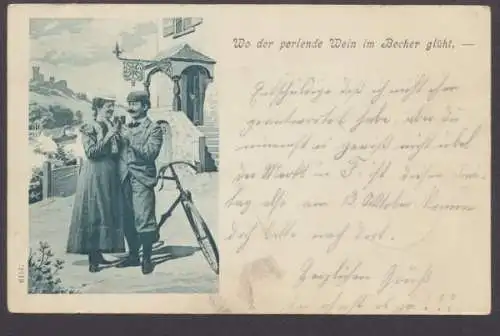 Wo der perlende Wein im Becher glüht. —
Entschuldige daß ich nicht eher
geantwortet habe, aber du
nimmst es gewiß nicht übel
der Markt in F. ist diesen Sonn-
tag also am 13 Oktober komm
doch bitte nach dort.
Herzlichen Gruß